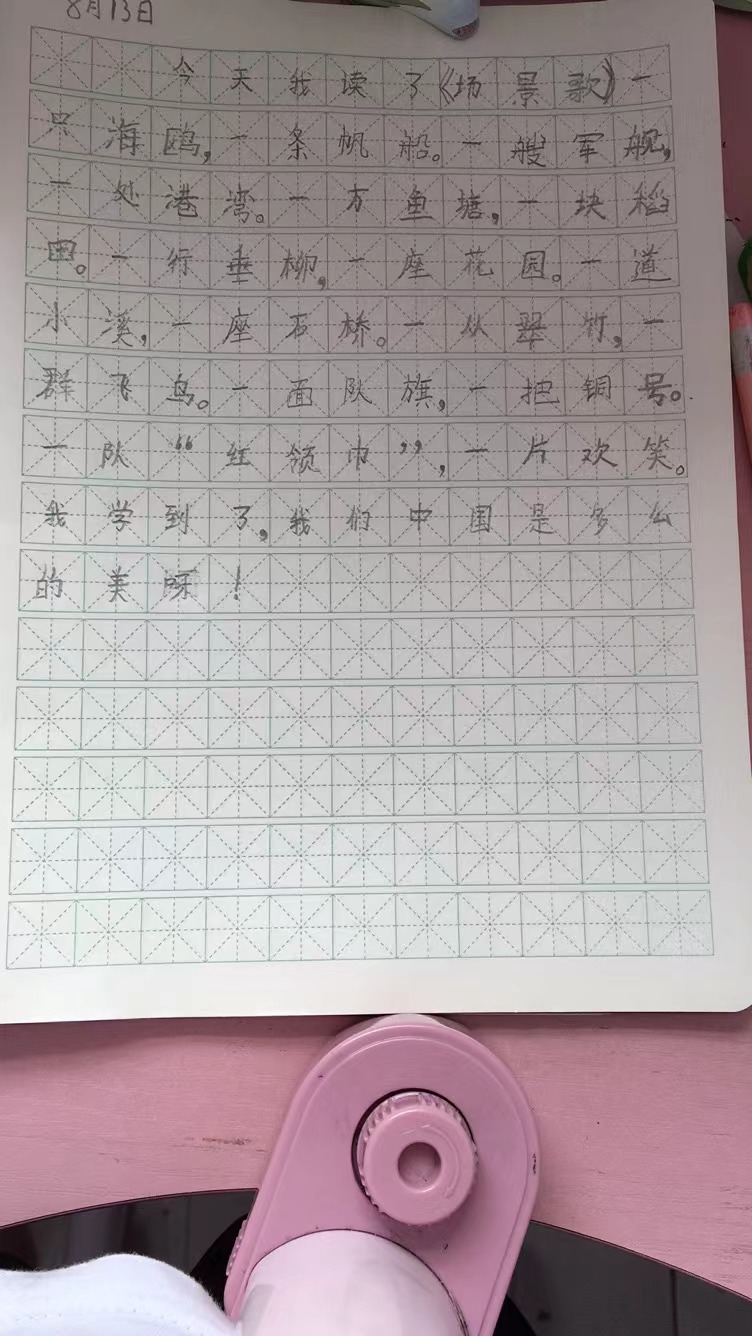 8月13日
今天我读了《场景歌》一
只海鸥,一条帆船。一艘军舰,
一处港湾。一方鱼塘,一块稻
田。一行垂柳,一座花园。一道
小溪,一座石桥。一从翠竹,一
群飞鸟。一面队旗,一把铜号。
一队“红领巾”,一片欢笑。
我学到了,我们中国是多么
的美呀!